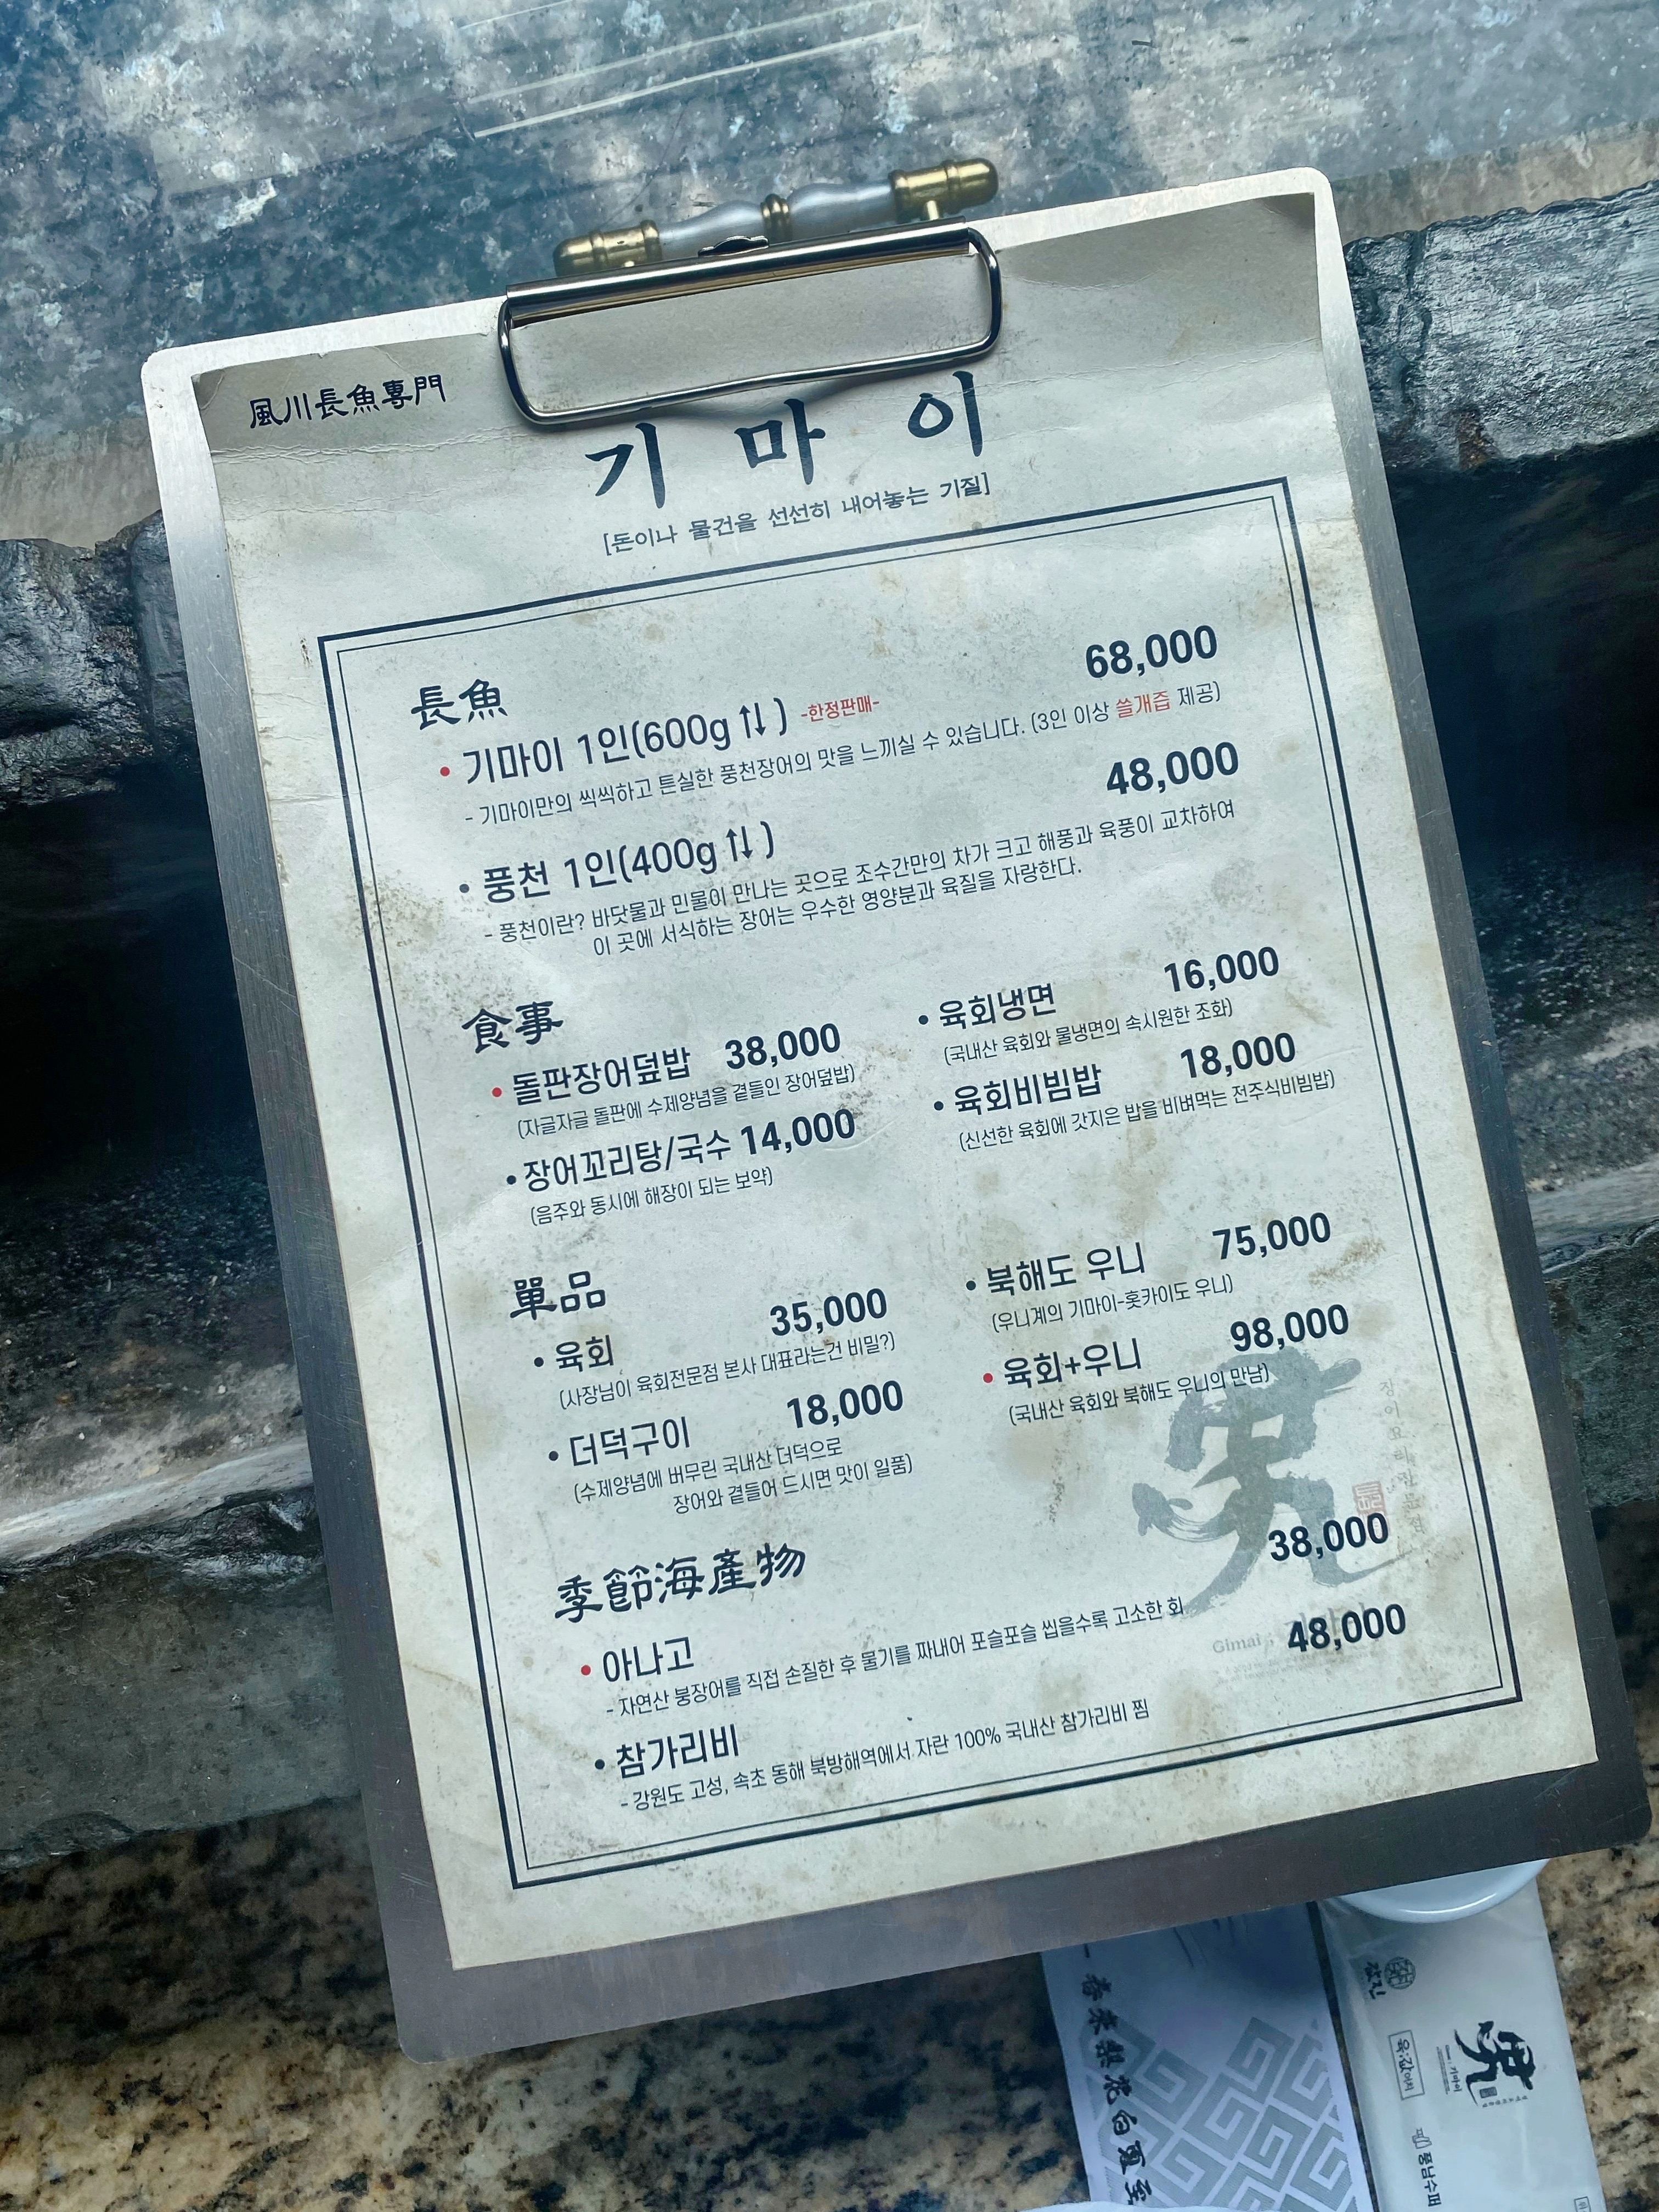 風川長魚專門
기마이
[돈이나 물건을 선선히 내어놓는 기질]
長魚
• 기마이 1인(600g⇅) -한정판매- 68,000
- 기마이만의 씩씩하고 튼실한 풍천장어의 맛을 느끼실 수 있습니다. (3인 이상 쓸개즙 제공)
• 풍천 1인(400g⇅) 48,000
- 풍천이란? 바닷물과 민물이 만나는 곳으로 조수간만의 차가 크고 해풍과 육풍이 교차하여
이 곳에 서식하는 장어는 우수한 영양분과 육질을 자랑한다.
食事
• 돌판장어덮밥 38,000
(자글자글 돌판에 수제양념을 곁들인 장어덮밥)
• 장어꼬리탕/국수 14,000
(음주와 동시에 해장이 되는 보약)
• 육회냉면 16,000
(국내산 육회와 물냉면의 속시원한 조화)
• 육회비빔밥 18,000
(신선한 육회에 갓지은 밥을 비벼먹는 전주식비빔밥)
單品
• 육회 35,000
(사장님이 육회전문점 본사 대표라는건 비밀?)
• 더덕구이 18,000
(수제양념에 버무린 국내산 더덕으로
장어와 곁들어 드시면 맛이 일품)
• 북해도 우니 75,000
(우니계의 기마이-홋카이도 우니)
• 육회+우니 98,000
(국내산 육회와 북해도 우니의 만남)
장어요리전문점
季節海產物
• 아나고 38,000
- 자연산 붕장어를 직접 손질한 후 물기를 짜내어 포슬포슬 씹을수록 고소한 회
Gimai
• 참가리비 48,000
- 강원도 고성, 속초 동해 북방해역에서 자란 100% 국내산 참가리비 찜
春來梨花白
풍남수퍼
기마이